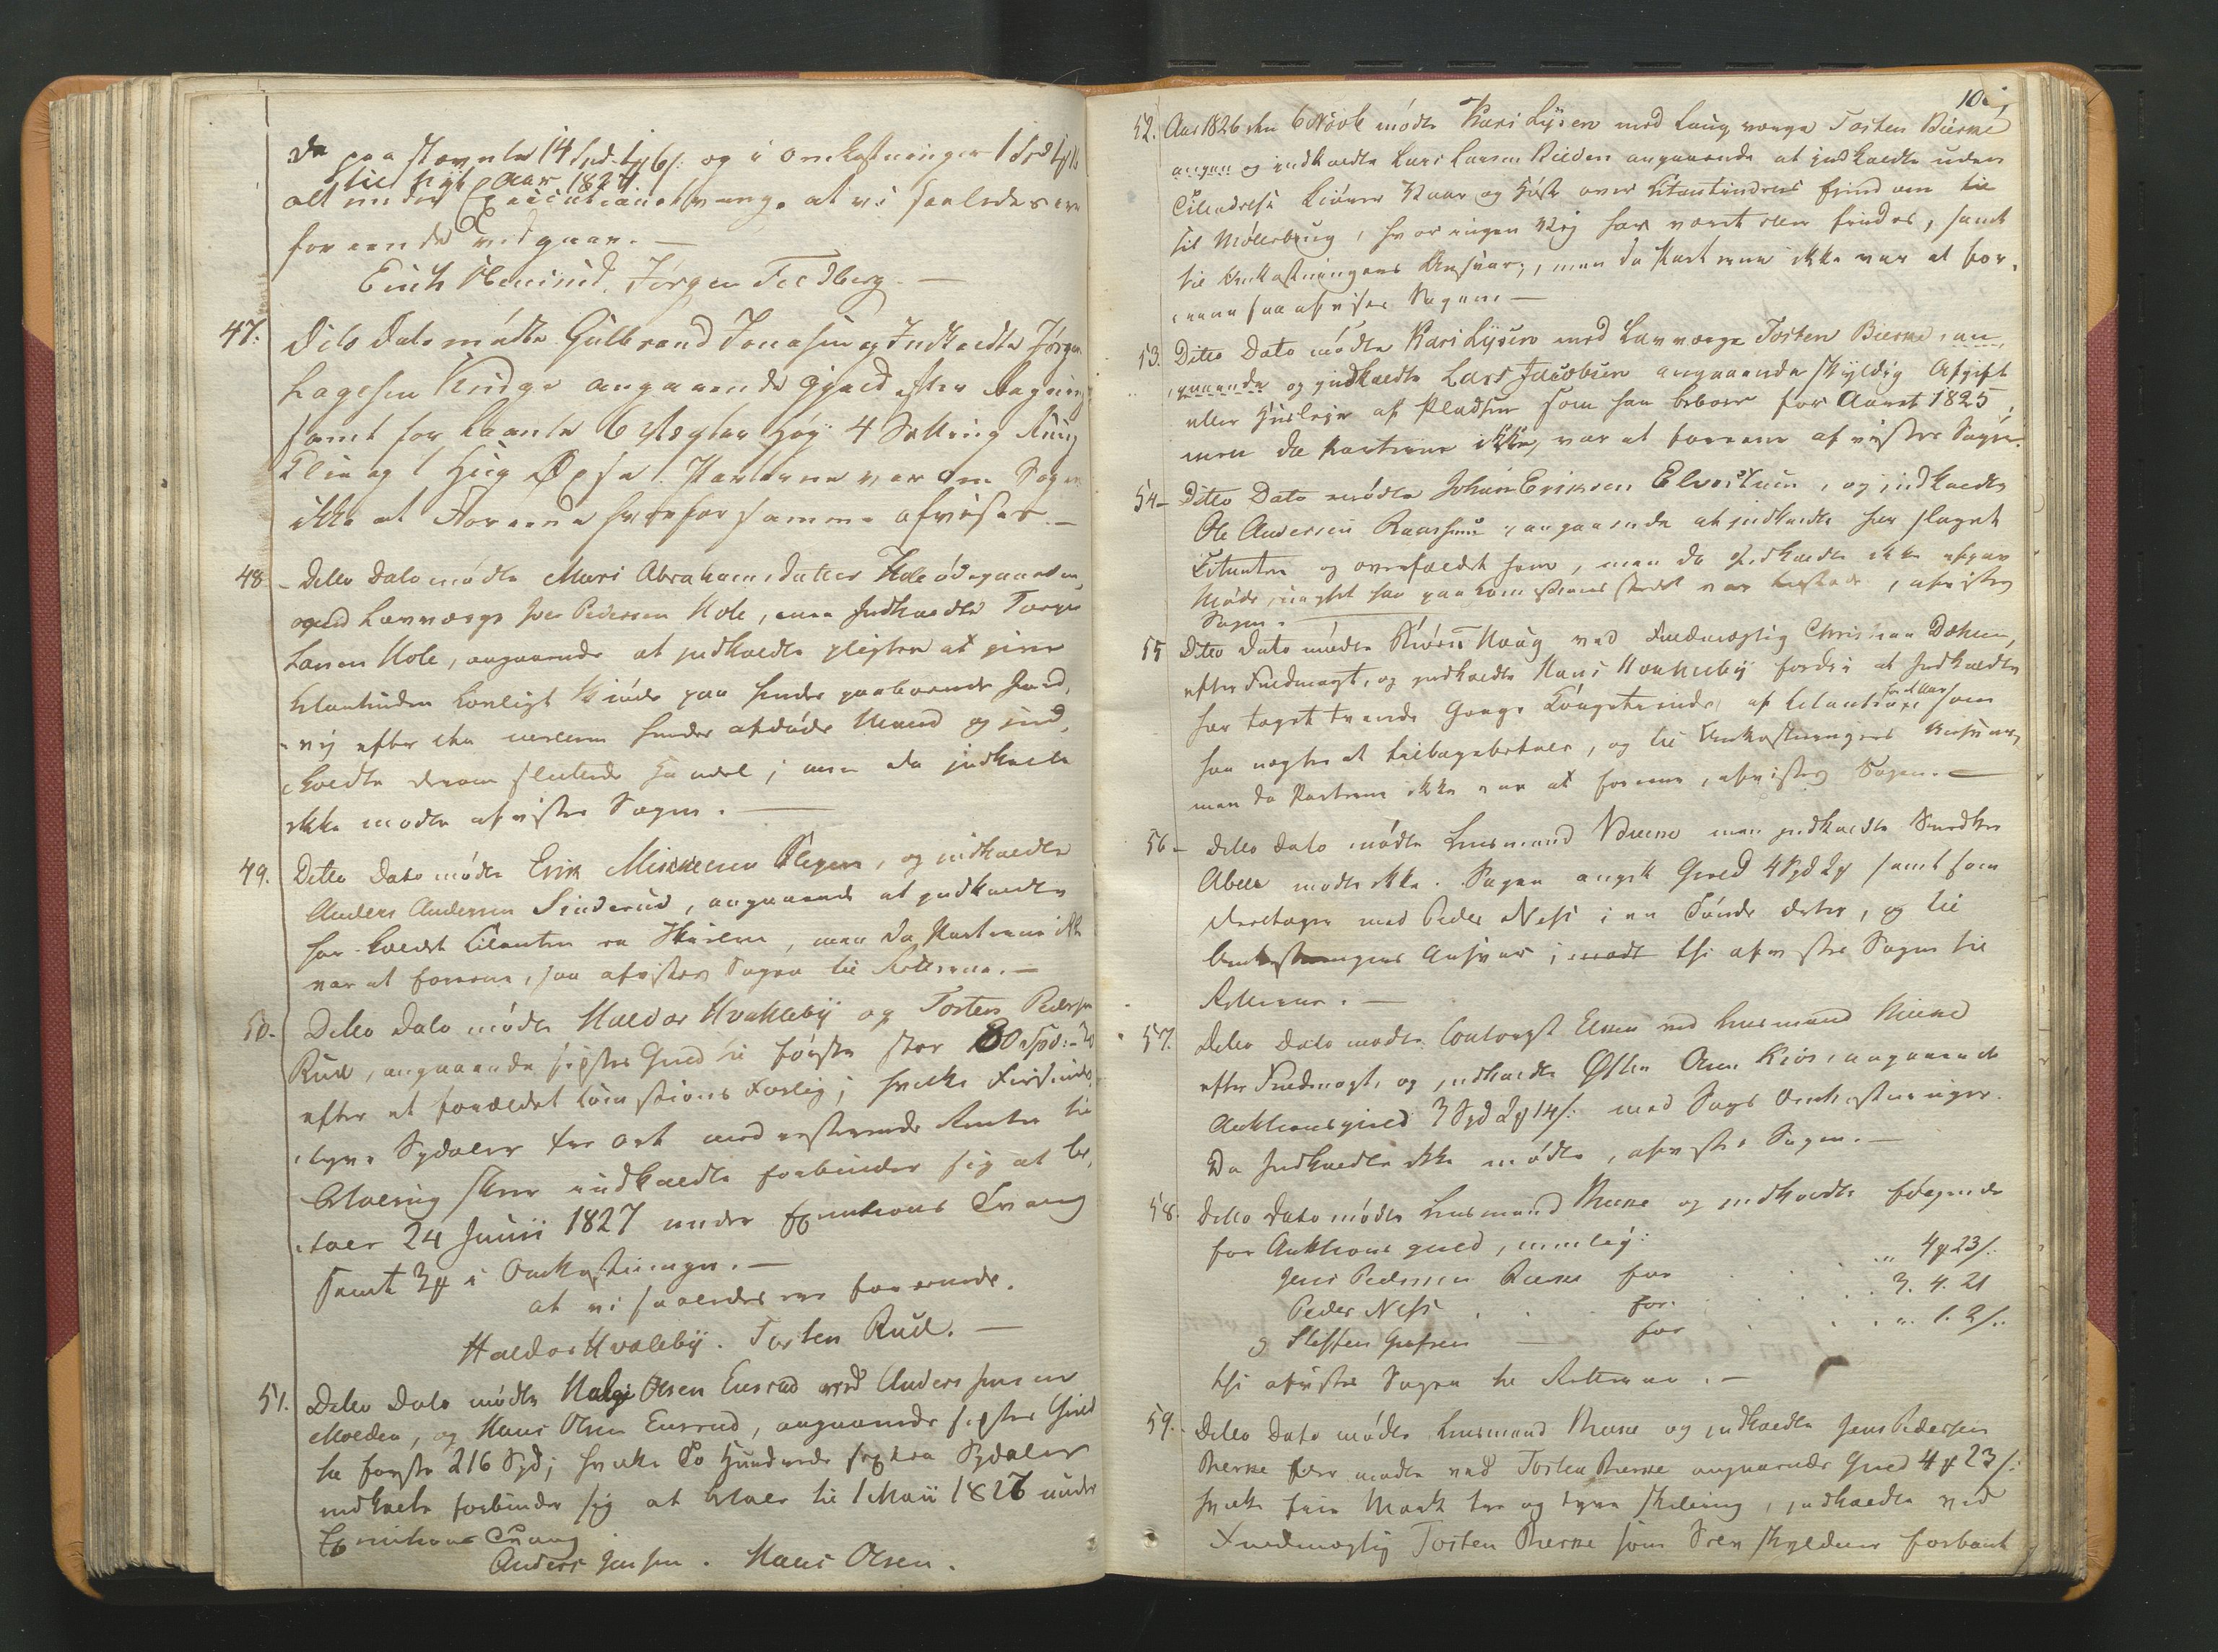 da paastævnte 14 Spd. og i Omkostninger 1 Spd
til Nytaar 1827
alt under Executions tvang. at vi saaledes ere
foreende vedgaar.
Erich Jørgen Feedberg.
47. Dito Dato mødte Gulbrand Jonasen og Indkaldte Jørgen
Lagesen angaaende Gjæld efter Regning
samt for laante 6 Høy 4 Setting Rug
og 1 Partene var om Sagen
ikke at Foreene hvorfor samme afvises.
48 - Ditto Dato mødte Mari Abrahamsdatter Hole ødegaarden
med Lavværge Iver Pedersen Hole, men Indkaldte Torger
Larsen Hole, angaaende at Indkaldte pligter at give
Citantinden lovligt Skiøde paa hendes paaboende Jord,
efter den imellem hendes afdøde Mand og ind-
kaldte derom sluttede Handel; men da indkaldte
ikke mødte afvistes Sagen.
49. Ditto Dato mødte Erik Mikkelsen, og indkaldte
Anders Andersen Sinderud, angaaende at indkaldte
har kaldt Citanten en, men da Partene ikke
var at foreene, saa afvistes Sagen til Retterne.
50. Ditto Dato mødte Haldor Hvakleby og Torsten Pedersen
Rud, angaaende sidstes Gjeld til første stor 80 Spd:
efter et forældet Comissions Forlig; hvilke Fiirsinds-
tyve Spdaler tre Ort med resterende Renter til
Betaling skeer indkaldte forbinder sig at be-
taler 24 Junii 1827 under Exicutions Tvang
samt 3 i Omkostninger.
at vi saaledes ere foreenede.
Haldor Hvaleby. Torsten Rud.
51. Ditto Dato mødte Helge Olsen Ensrud ved Anders Jensen
Moeden, og Hans Olsen Ensrud, angaaende sidstes Gjeld
til første 216 Spd; hvilke To Hundrede sexten Spdaler
indkaldte forbinder sig at betale til 1 Maii 1827 under
Exicutions Tvang
Anders Jensen. Hans Olsen.
52. Aar 1826 den 6 Novbr mødte Kari Lysen med Laugværge Torsten Bierke
og indkaldte Lars Larsen angaaende at indkaldte uden
Tilladelse kiører Vaar og Høst over Citantindens Eiendom til
sit Møllebrug, hvor ingen Vej har været eller findes, samt
til Omkostningens Ansvar, men da Partene ikke var at for-
eene saa afvises Sagen.
53. Ditto Dato mødte Kari Lysen med Lavværge Torsten Bierke, an-
gaaende og indkaldte Lars Jacobsen angaaende skyldig Afgift
eller Husleje af Pladsen som han beboer for Aaret 1825,
men da Partene ikke, var at foreene afvistes Sagen.
54 - Ditto Dato mødte Johan Eriksen Elvestuen, og indkaldte
Ole Andersen, angaaende at indkaldte har slaget
Citanten og overfaldet ham, men da Indkaldte ikke
Møde, uagtet han paa Comissions stedet var tilstede, afvistes
Sagen.
55 Ditto Dato mødte Haug ved Fuldmægtig Christian Dæhlen,
efter Fuldmagt, og indkaldte Hans Hvakleby fordi at Indkaldte
har taget tvende Gange Kongetiende af Citanten for et Aar som
han nægter at tilbagebetale, og til Omkostningens Ansvar,
men da Partene ikke var at foreene, afvistes Sagen.
56 - Ditto Dato mødte Lensmand Bierke men indkaldte Snedker
Abel mødte ikke. Sagen angik Gjeld 4 Spd 2 samt som
Deeltager med Peder Ness i en Tønde, og til
Omkostningens Ansvar; thi afvistes Sagen til
Retterne.
57. Ditto Dato mødte Contorist Elsen ved Lensmand Bierke
efter Fuldmagt, og indkaldte Østen Olsen, angaaende
Auktionsgjeld 3 Spd 2 14 s. med Sags Omkostninger.
Da Indkaldte ikke mødte, afvistes Sagen.
58. Ditto Dato mødte Lensmand Bierke og indkaldte følgende
for Auktions gjeld, nemlig:
Jens Pedersen Bierke for . . . „ 4 23 s.
Peder Ness . . for . . . 3. 4. 21
og Steffen for . . . „ 1. 2 s.
thi afvistes Sagen til Retterne.
59. Ditto Dato mødte Lensmand Bierke og indkaldte Jens Pedersen
Bierke som mødte ved Torsten Bierke angaaende Gjeld 4 23 s.
hvilke fire Mark tre og tyve Skilling, indkaldte ved
Fuldmægtig Torsten Bierke som Selv skyldner forbandt